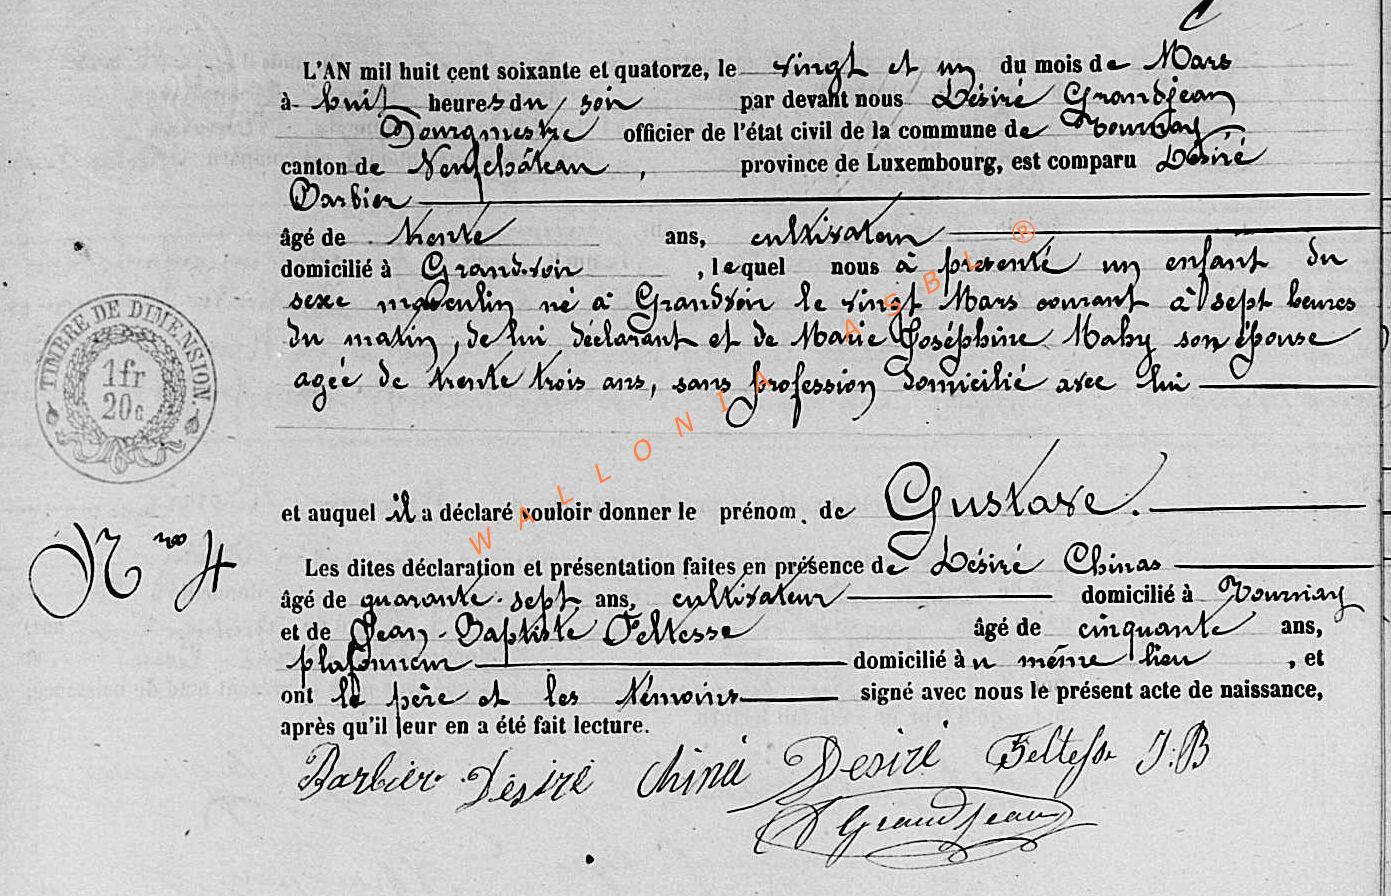 L'AN mil huit cent soixante et quatorze, le vingt et un du mois de Mars
à huit heures du soir par devant nous Désiré Grandjean
Bourgmestre officier de l'état civil de la commune de Tournay
canton de Neufchâteau, province de Luxembourg, est comparu Désiré
Barbier
âgé de trente ans, cultivateur
domicilié à Grandvoir, lequel nous à présenté un enfant du
sexe masculin né à Grandvoir le vingt Mars courant à sept heures
du matin, de lui déclarant et de Marie Joséphine Mahy son épouse
agée de trente trois ans, sans profession domicilié avec lui
WALLONIA ASBL ®
TIMBRE DE DIMENSION.
1fr
20c
et auquel il a déclaré vouloir donner le prénom de Gustave.
Nro 4
Les dites déclaration et présentation faites en présence de Désiré Chinas
âgé de quarante-sept ans, cultivateur domicilié à Tournay
et de Jean-Baptiste Feltesse âgé de cinquante ans,
plafonneur domicilié à u même lieu, et
ont le père et les témoins signé avec nous le présent acte de naissance,
après qu'il leur en a été fait lecture.
Barbier Désiré Chiná Desiré Feltesse J:B
D Grandjean